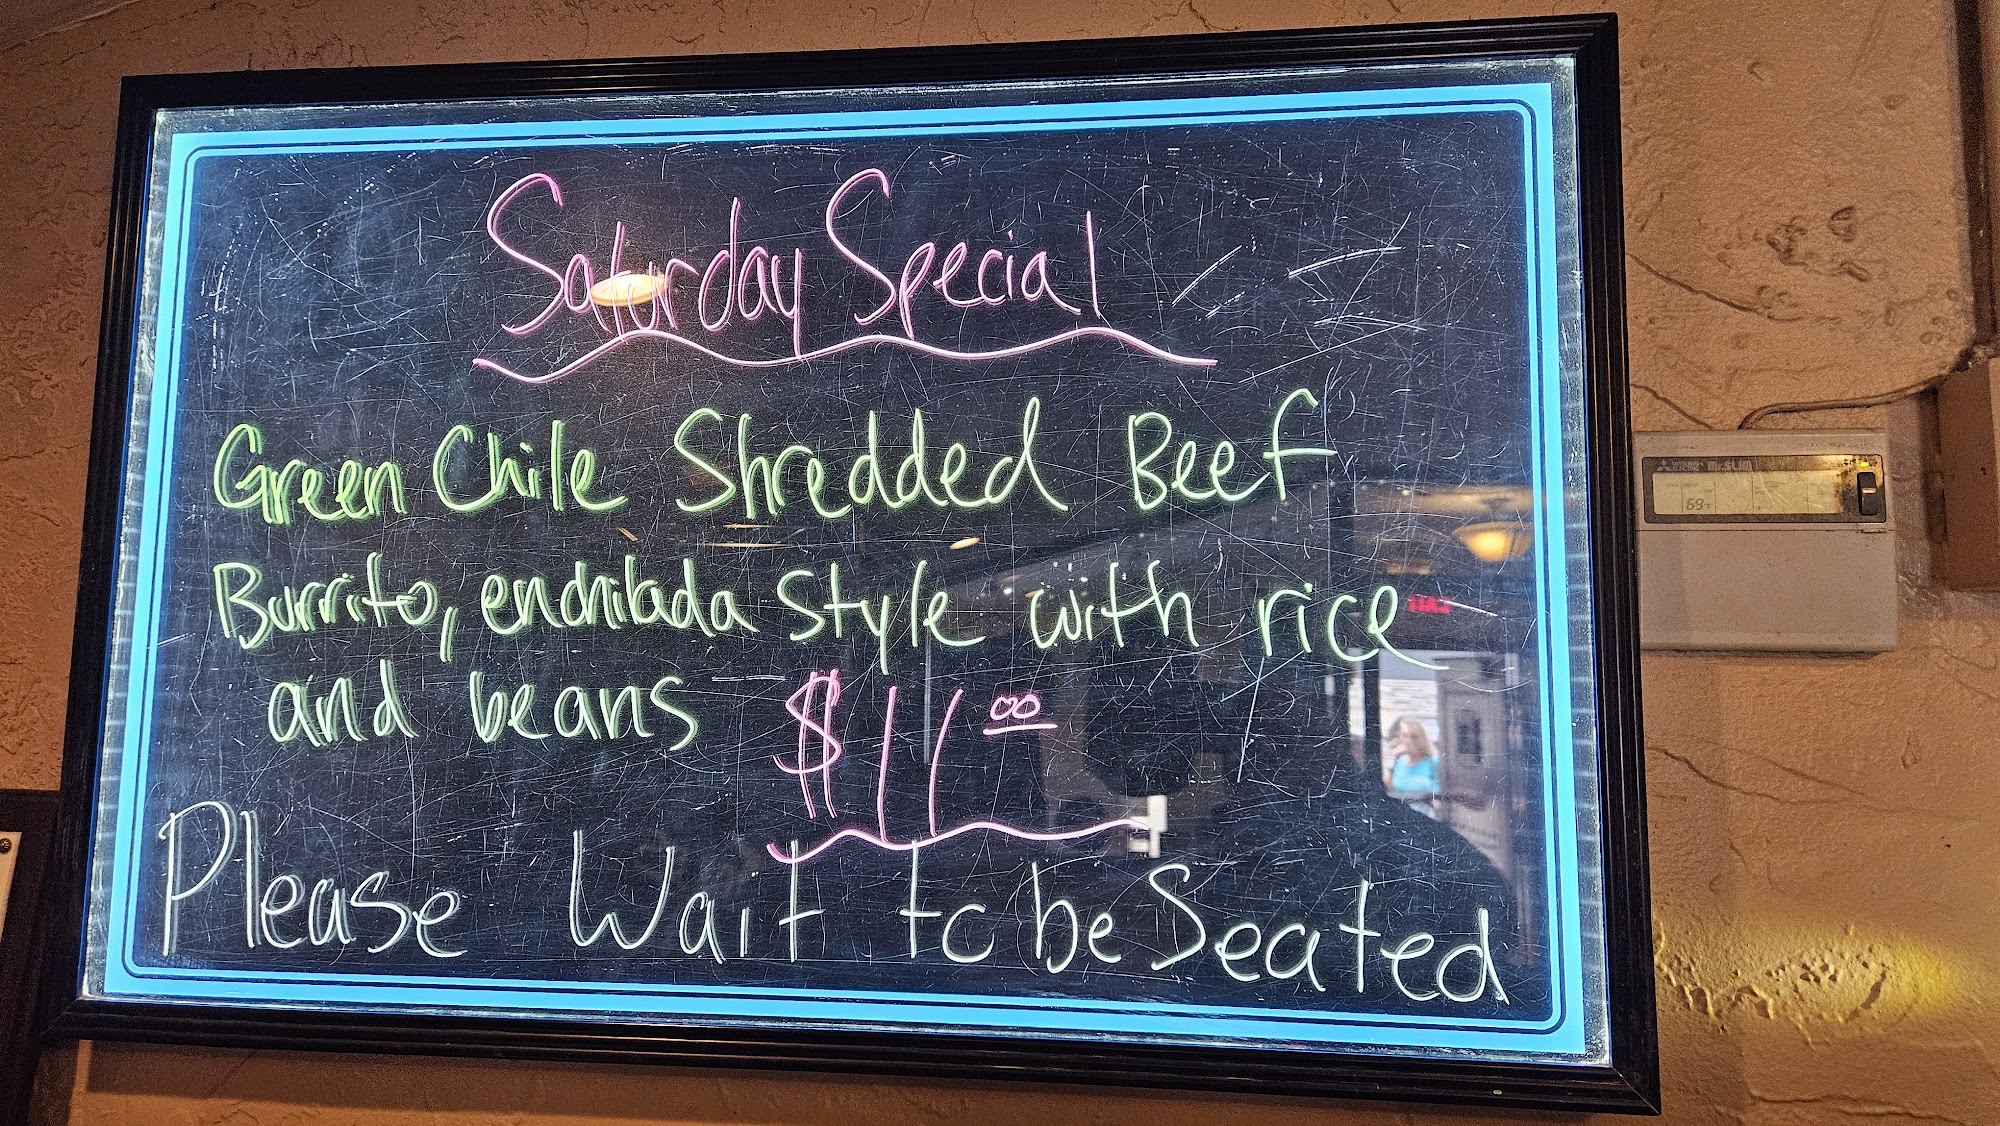 Saturday Special
Green Chile Shredded Beef
Burrito, enchilada style with rice
and beans $11.00
Please Wait to be Seated
MITSUBISHI ELECTRIC Mr.SLIM
69°F